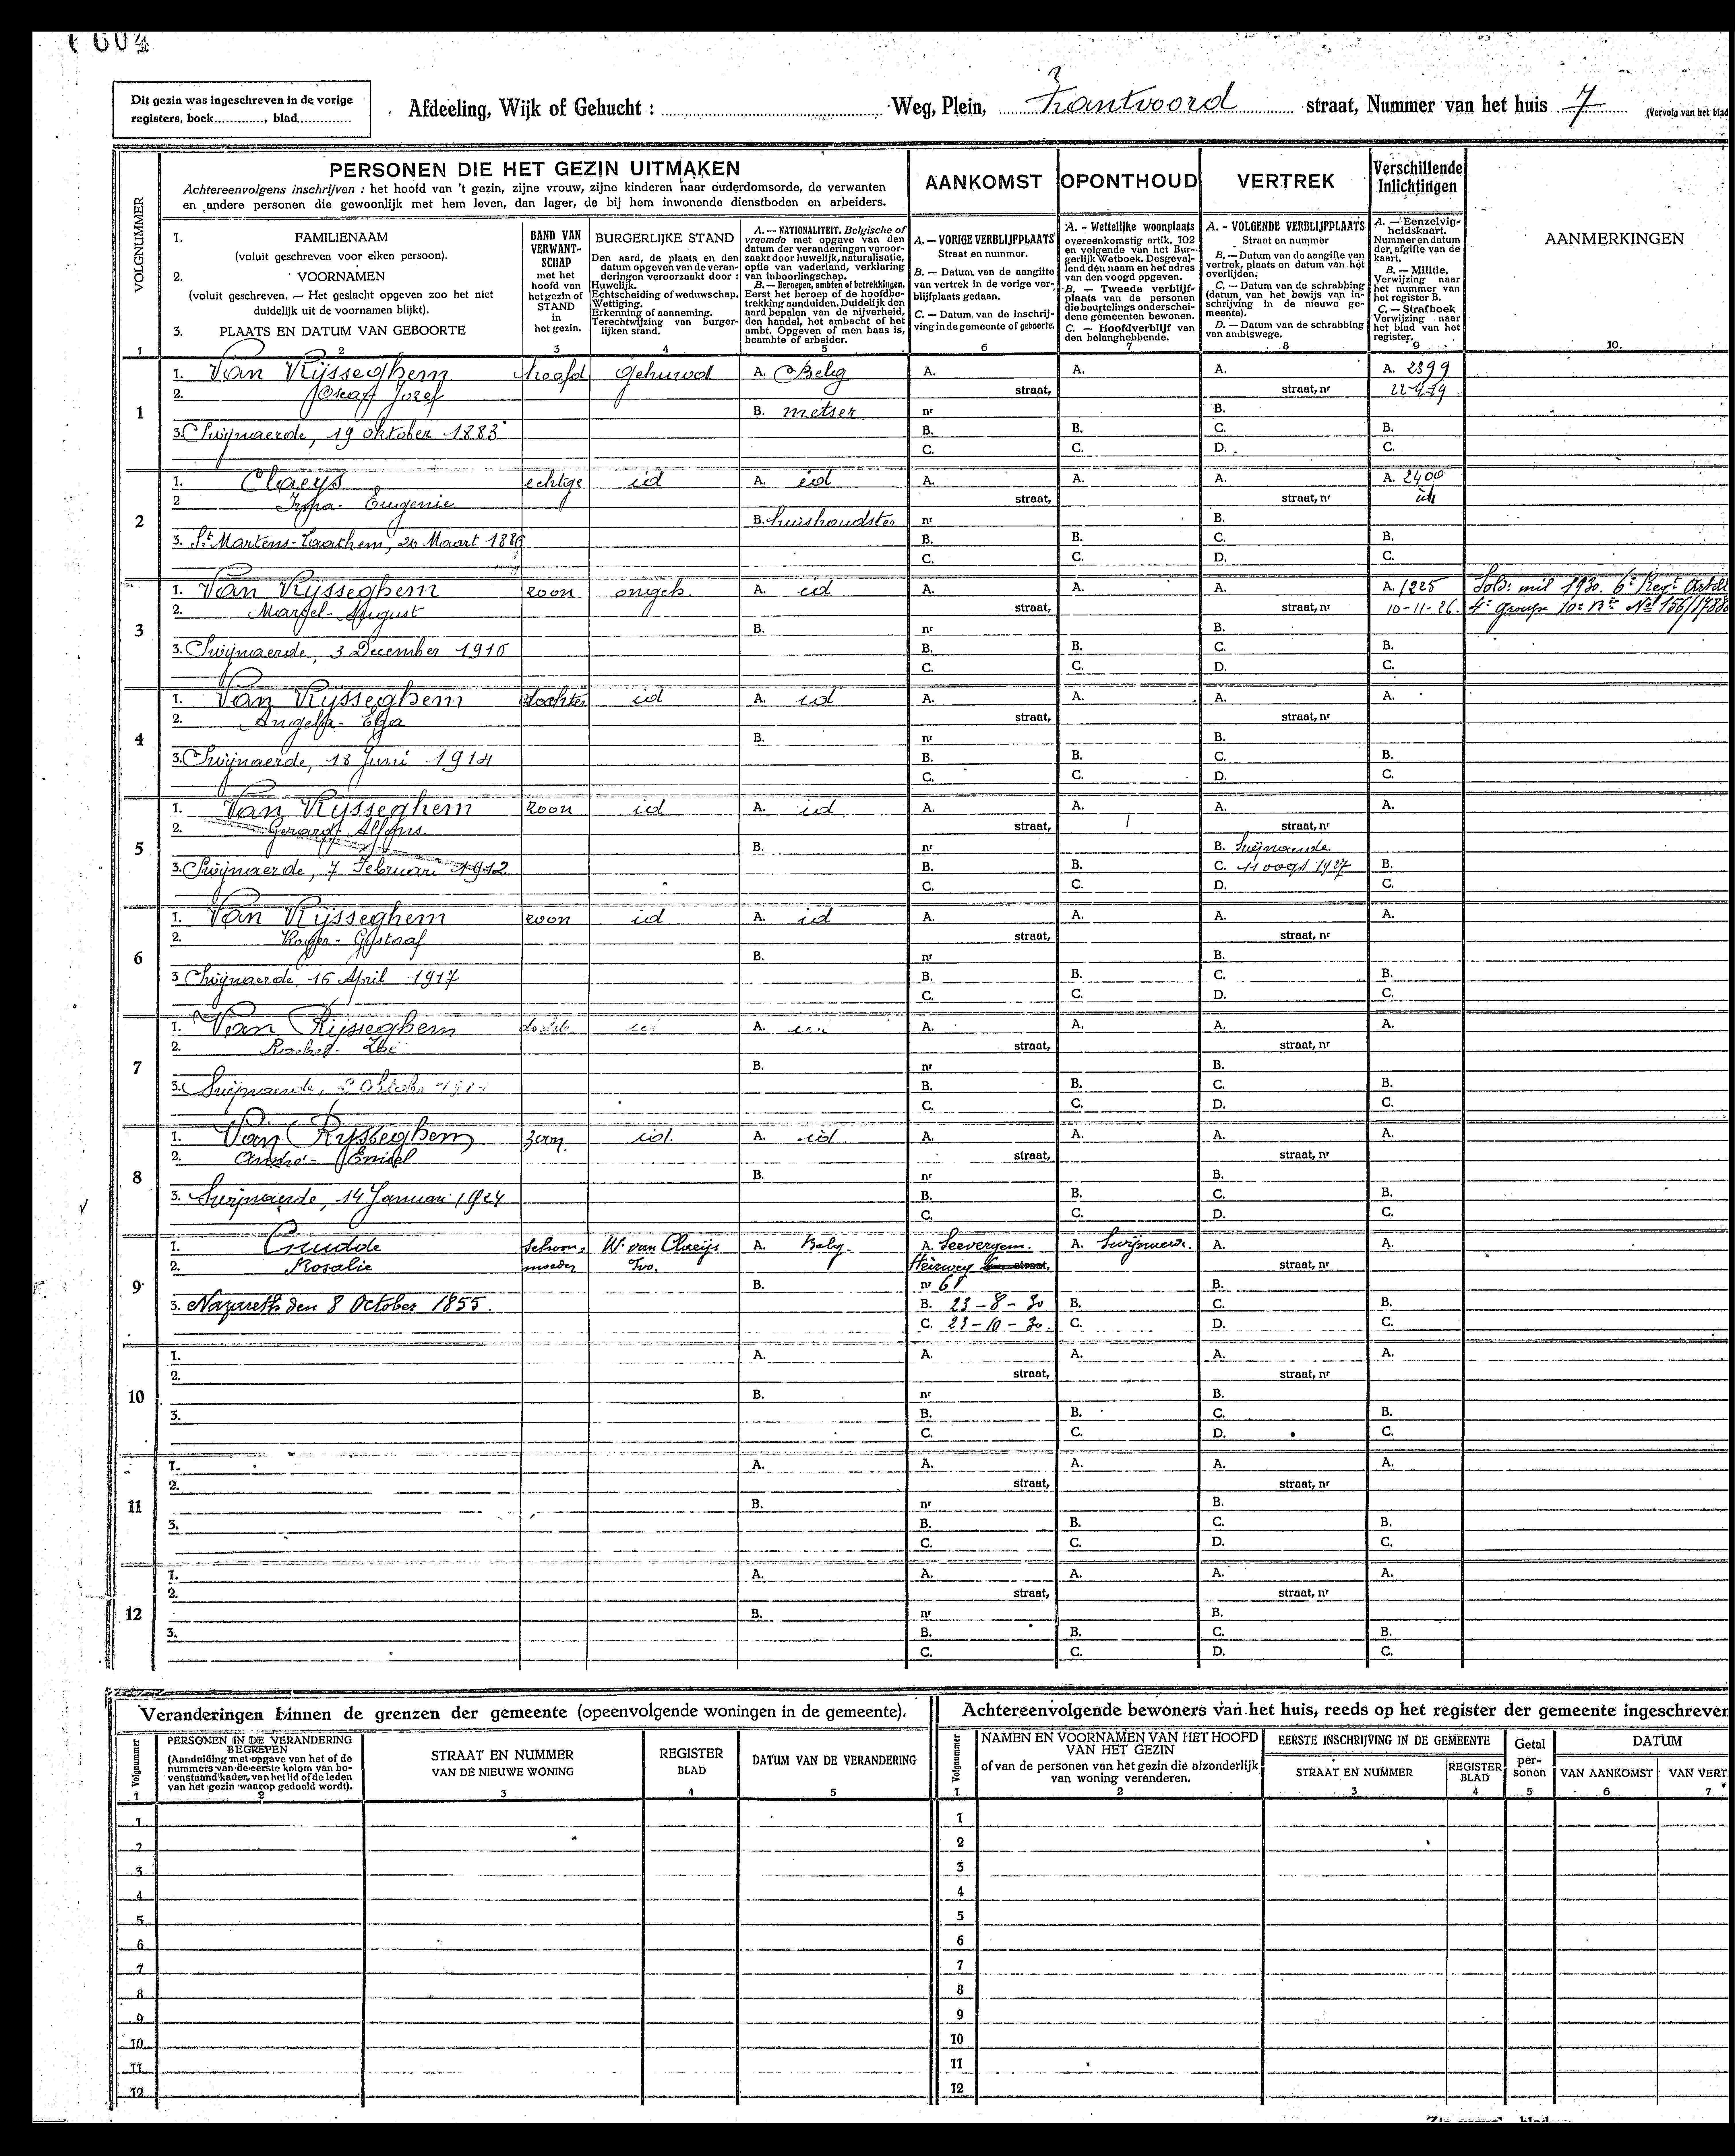 Dit gezin was ingeschreven in de vorige
registers, boek............, blad............
Afdeeling, Wijk of Gehucht : Weg, Plein, Zantvoord straat, Nummer van het huis 7 (Vervolg van het blad
VOLGNUMMER
PERSONEN DIE HET GEZIN UITMAKEN
Achtereenvolgens inschrijven : het hoofd van 't gezin, zijne vrouw, zijne kinderen naar ouderdomsorde, de verwanten
en andere personen die gewoonlijk met hem leven, dan lager, de bij hem inwonende dienstboden en arbeiders.
AANKOMST OPONTHOUD VERTREK Verschillende Inlichtingen
AANMERKINGEN
1. FAMILIENAAM
(voluit geschreven voor elken persoon).
2. VOORNAMEN
(voluit geschreven. — Het geslacht opgeven zoo het niet
duidelijk uit de voornamen blijkt).
3. PLAATS EN DATUM VAN GEBOORTE
BAND VAN
VERWANT-
SCHAP
met het
hoofd van
het gezin of
STAND
in
het gezin.
BURGERLIJKE STAND
Den aard, de plaats en den
datum opgeven van de veran-
deringen veroorzaakt door :
Huwelijk.
Echtscheiding of weduwschap.
Wettiging.
Erkenning of aanneming.
Terechtwijzing van burger-
lijken stand.
A. — NATIONALITEIT. Belgische of
vreemde met opgave van den
datum der veranderingen veroor-
zaakt door huwelijk, naturalisatie,
optie van vaderland, verklaring
van inboorlingschap.
B. — Beroepen, ambten of betrekkingen.
Eerst het beroep of de hoofdbe-
trekking aanduiden. Duidelijk den
aard bepalen van de nijverheid,
den handel, het ambacht of het
ambt. Opgeven of men baas is,
beambte of arbeider.
A. — VORIGE VERBLIJFPLAATS
Straat en nummer.
B. — Datum van de aangifte
van vertrek in de vorige ver-
blijfplaats gedaan.
C. — Datum van de inschrij-
ving in de gemeente of geboorte.
A. - Wettelijke woonplaats
overeenkomstig artik. 102
en volgende van het Bur-
gerlijk Wetboek. Desgeval-
lend den naam en het adres
van den voogd opgeven.
B. — Tweede verblijf-
plaats van de personen
die beurtelings onderschei-
dene gemeenten bewonen.
C. — Hoofdverblijf van
den belanghebbende.
A. - VOLGENDE VERBLIJFPLAATS
Straat en nummer
B. — Datum van de aangifte van
vertrek, plaats en datum van het
overlijden.
C. — Datum van de schrabbing
(datum van het bewijs van in-
schrijving in de nieuwe ge-
meente).
D. — Datum van de schrabbing
van ambtswege.
A. — Eenzelvig-
heidskaart.
Nummer en datum
der afgifte van de
kaart.
B. — Militie.
Verwijzing naar
het nummer van
het register B.
C. — Strafboek
Verwijzing naar
het blad van het
register.
1 2 3 4 5 6 7 8 9 10.
1
1. Van Rijsseghem hoofd gehuwd A. Belg A. A. A. A. 2399
2. Oscar Jozef straat, straat, nr
B. metser nr B.
3. Swijnaerde, 19 oktober 1883 B. B. C. B.
C. C. D. C.
2
1. Claeys echtge id A. id A. A. A. A. 2400
2 Irma - Eugenie straat, straat, nr id
B. huishoudster nr B.
3. St Martens-Laathem, 20 Maart 1886 B. B. C. B.
C. C. D. C.
3
1. Van Rijsseghem zoon ongeh. A. id A. A. A. A. 1225 Sold: mil 1930. 6e Regt
2. Marcel - August straat, straat, nr 10-11-26. 4e groupe 10e
B. nr B.
3. Swijnaerde, 3 December 1910 B. B. C. B.
C. C. D. C.
4
1. Van Rijsseghem dochter id A. id A. A. A. A.
2. Angela - Elza straat, straat, nr
B. nr B.
3. Swijnaerde, 18 Juni 1914 B. B. C. B.
C. C. D. C.
5
1. Van Rijsseghem zoon id A. id A. A. A. A.
2. Gerard Alfons straat, straat, nr
B. nr B. Swijnaerde
3. Swijnaerde, 7 Februari 1912 B. B. C. 11 oogst 1927 B.
C. C. D. C.
6
1. Van Rijsseghem zoon id A. id A. A. A. A.
2. Roger - Gustaaf straat, straat, nr
B. nr B.
3 Swijnaerde, 16 April 1917 B. B. C. B.
C. C. D. C.
7
1. Van Rijsseghem A. A. A. A. A.
2. Rachel - straat, straat, nr
B. nr B.
3. Swijnaerde, 2 Oktober B. B. C. B.
C. C. D. C.
8
1. Van Rijsseghem zoon id. A. id A. A. A. A.
2. André - Emiel straat, straat, nr
B. nr B.
3. Swijnaerde, 14 Januari 1924 B. B. C. B.
C. C. D. C.
9
1. Crudde schoon- W. van Claeijs A. Belg. A. Seevergem. A. Swijnaerde. A. A.
2. Rosalie moeder Ivo. Steirweg straat, straat, nr
B. nr B.
3. Nazareth den 8 October 1855. B. 23-8-30 B. C. B.
C. 23-10-30. C. D. C.
10
1. A. A. A. A. A.
2. straat, straat, nr
B. nr B.
3. B. B. C. B.
C. C. D. C.
11
1. A. A. A. A. A.
2. straat, straat, nr
B. nr B.
3. B. B. C. B.
C. C. D. C.
12
1. A. A. A. A. A.
2. straat, straat, nr
B. nr B.
3. B. B. C. B.
C. C. D. C.
Veranderingen binnen de grenzen der gemeente (opeenvolgende woningen in de gemeente).
Volgnummer
PERSONEN IN DE VERANDERING
BEGREPEN
(Aanduiding met opgave van het of de
nummers van de eerste kolom van bo-
venstaand kader, van het lid of de leden
van het gezin waarop gedoeld wordt).
STRAAT EN NUMMER
VAN DE NIEUWE WONING
REGISTER
BLAD
DATUM VAN DE VERANDERING
1 2 3 4 5
1
2
3
4
5
6
7
8
9
10
11
12
Achtereenvolgende bewoners van het huis, reeds op het register der gemeente ingeschreven
Volgnummer
NAMEN EN VOORNAMEN VAN HET HOOFD
VAN HET GEZIN
of van de personen van het gezin die afzonderlijk
van woning veranderen.
EERSTE INSCHRIJVING IN DE GEMEENTE
STRAAT EN NUMMER
REGISTER
BLAD
Getal
per-
sonen
DATUM
VAN AANKOMST VAN VERT
1 2 3 4 5 6 7
1
2
3
4
5
6
7
8
9
10
11
12